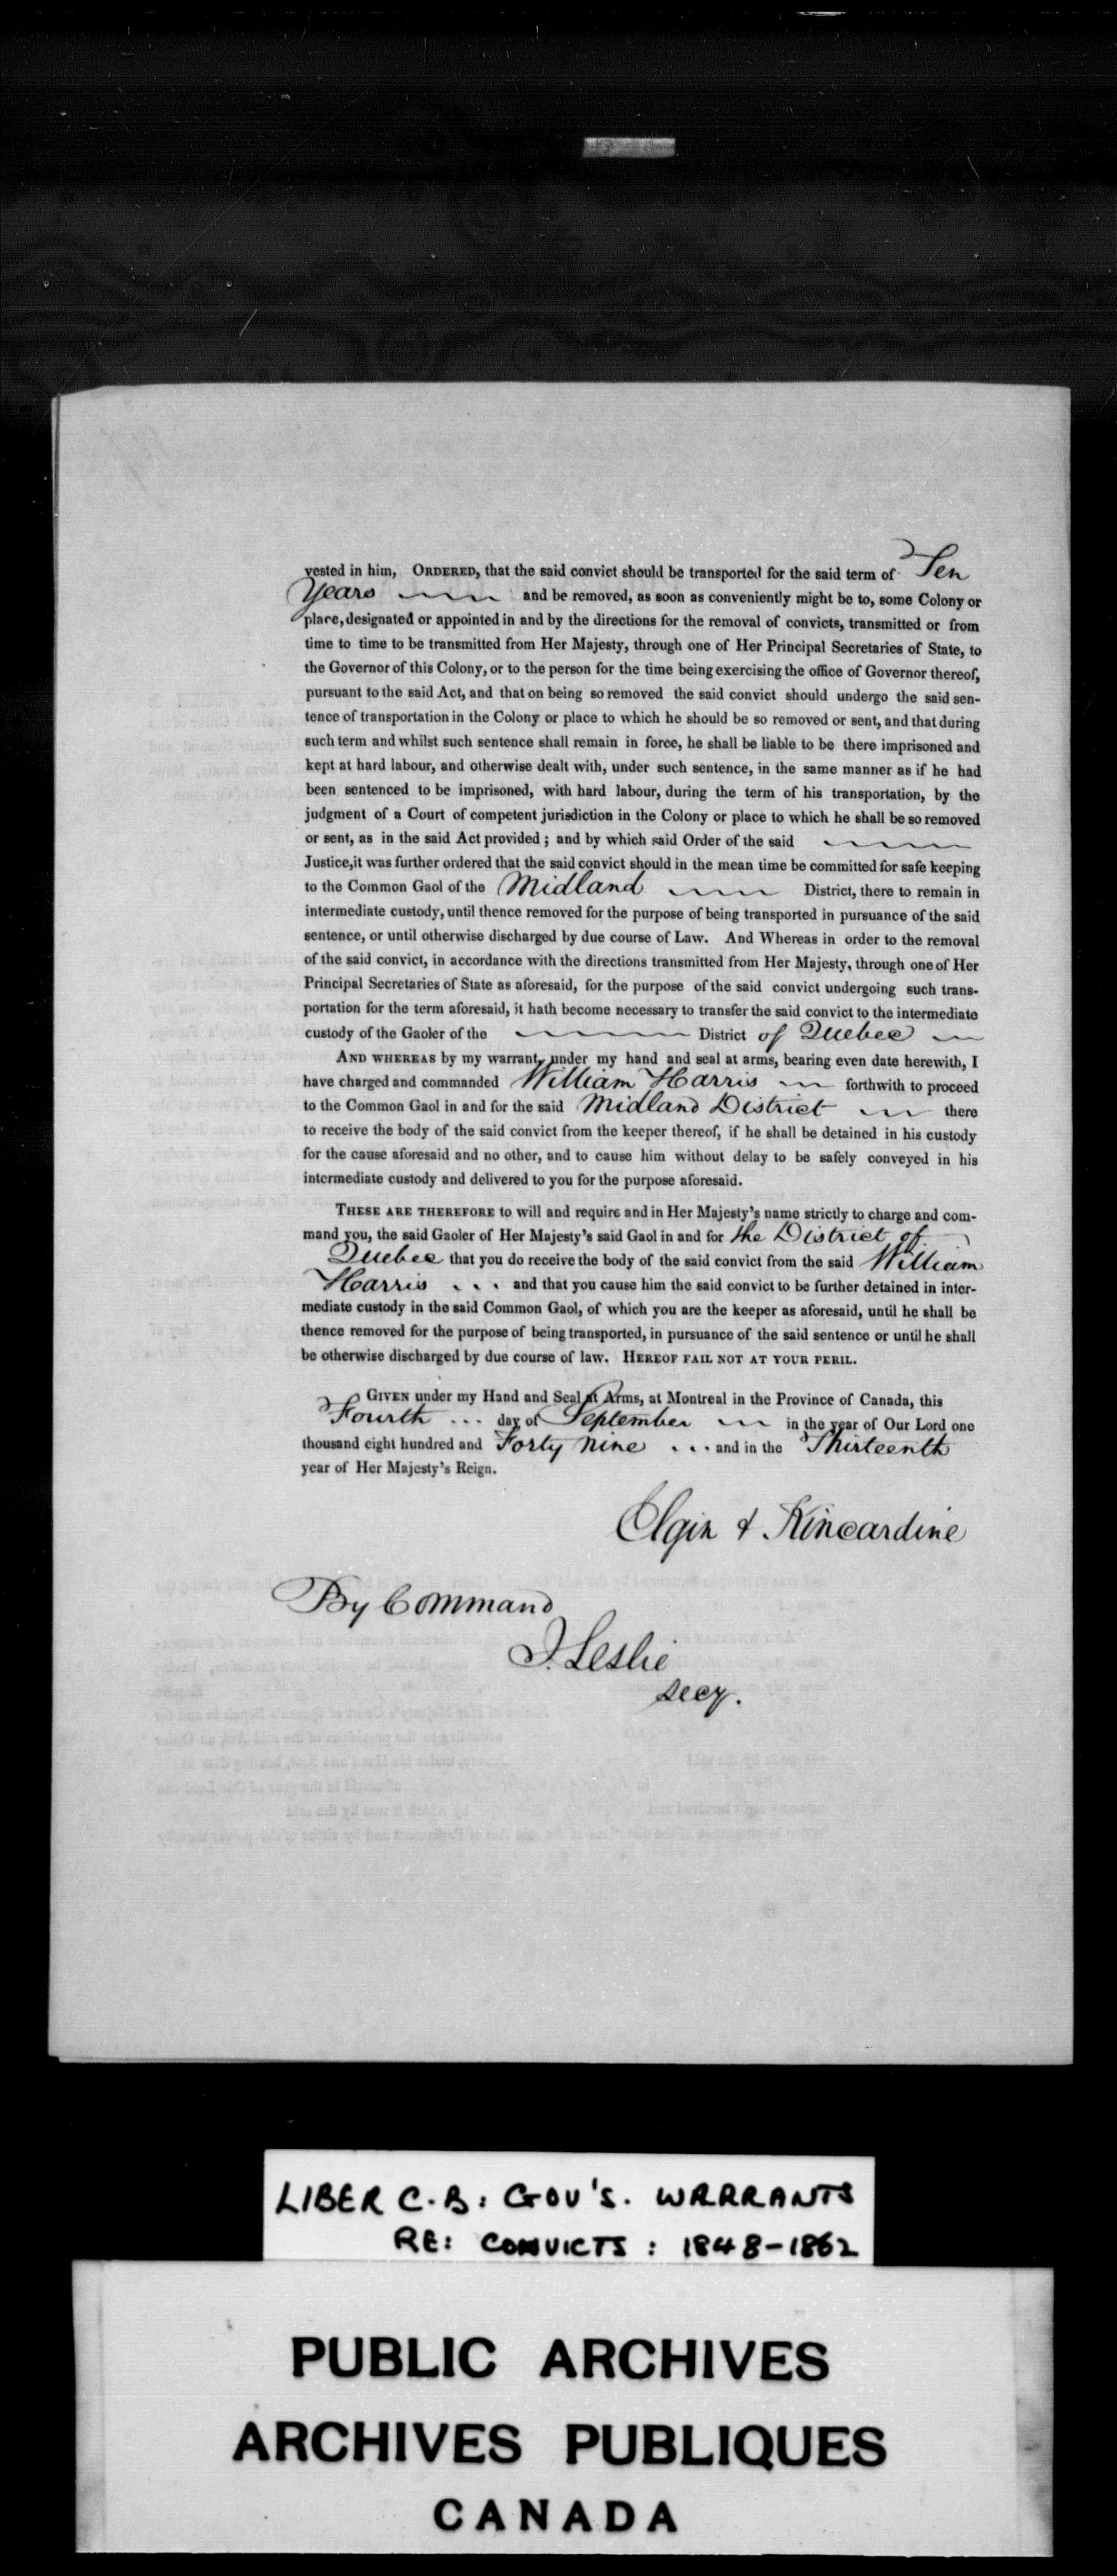 vested in him, ORDERED, that the said convict should be transported for the said term of Ten
Years and be removed, as soon as conveniently might be to, some Colony or
place, designated or appointed in and by the directions for the removal of convicts, transmitted or from
time to time to be transmitted from Her Majesty, through one of Her Principal Secretaries of State, to
the Governor of this Colony, or to the person for the time being exercising the office of Governor thereof,
pursuant to the said Act, and that on being so removed the said convict should undergo the said sen-
tence of transportation in the Colony or place to which he should be so removed or sent, and that during
such term and whilst such sentence shall remain in force, he shall be liable to be there imprisoned and
kept at hard labour, and otherwise dealt with, under such sentence, in the same manner as if he had
been sentenced to be imprisoned, with hard labour, during the term of his transportation, by the
judgment of a Court of competent jurisdiction in the Colony or place to which he shall be so removed
or sent, as in the said Act provided; and by which said Order of the said
Justice, it was further ordered that the said convict should in the mean time be committed for safe keeping
to the Common Gaol of the Midland District, there to remain in
intermediate custody, until thence removed for the purpose of being transported in pursuance of the said
sentence, or until otherwise discharged by due course of Law. And Whereas in order to the removal
of the said convict, in accordance with the directions transmitted from Her Majesty, through one of Her
Principal Secretaries of State as aforesaid, for the purpose of the said convict undergoing such trans-
portation for the term aforesaid, it hath become necessary to transfer the said convict to the intermediate
custody of the Gaoler of the District of Quebec
AND WHEREAS by my warrant, under my hand and seal at arms, bearing even date herewith, I
have charged and commanded William Harris forthwith to proceed
to the Common Gaol in and for the said Midland District there
to receive the body of the said convict from the keeper thereof, if he shall be detained in his custody
for the cause aforesaid and no other, and to cause him without delay to be safely conveyed in his
intermediate custody and delivered to you for the purpose aforesaid.
THESE ARE THEREFORE to will and require and in Her Majesty's name strictly to charge and com-
mand you, the said Gaoler of Her Majesty's said Gaol in and for the District of
Quebec that you do receive the body of the said convict from the said William
Harris and that you cause him the said convict to be further detained in inter-
mediate custody in the said Common Gaol, of which you are the keeper as aforesaid, until he shall be
thence removed for the purpose of being transported, in pursuance of the said sentence or until he shall
be otherwise discharged by due course of law. HEREOF FAIL NOT AT YOUR PERIL.
GIVEN under my Hand and Seal at Arms, at Montreal in the Province of Canada, this
Fourth ... day of September in the year of Our Lord one
thousand eight hundred and Forty Nine ... and in the Thirteenth
year of Her Majesty's Reign.
Elgin & Kincardine
By Command
J. Leslie
secy.
LIBER C.B: GOV'S. WARRANTS
RE: CONVICTS: 1848-1862
PUBLIC ARCHIVES
ARCHIVES PUBLIQUES
CANADA